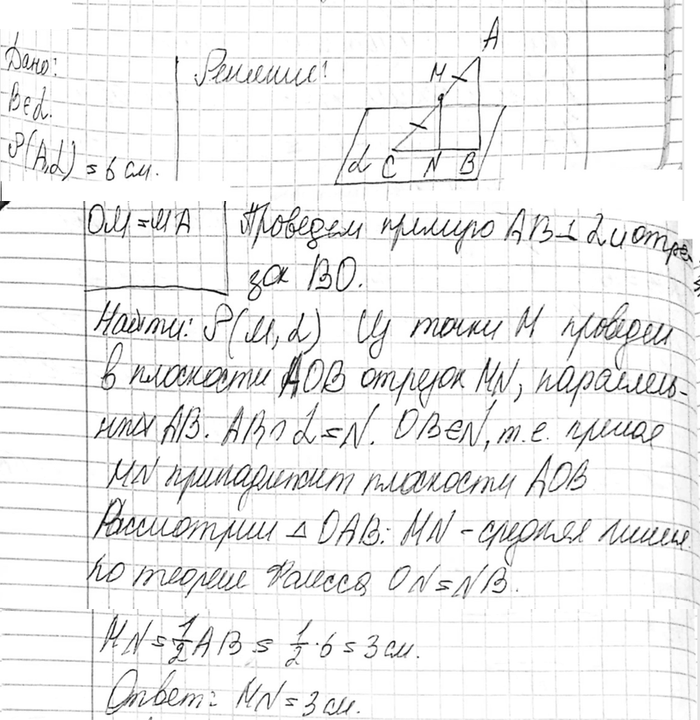 Дано:
B∈α.
ρ(A,α) = 6 см.
Решение:
A
M
α C N B
OM = MA
Проведем прямую AB ⊥ α и отре-
зок BO.
Найти: ρ(M,α) Из точки M проведем
в плоскости AOB отрезок MN, параллель-
ный AB. AB ∩ α = N. OB∈N, т.е. прямая
MN принадлежит плоскости AOB
Рассмотрим △ OAB: MN - средняя линия
по теореме Фалеса ON = NB.
MN = 1/2 AB = 1/2 · 6 = 3 см.
Ответ: MN = 3 см.